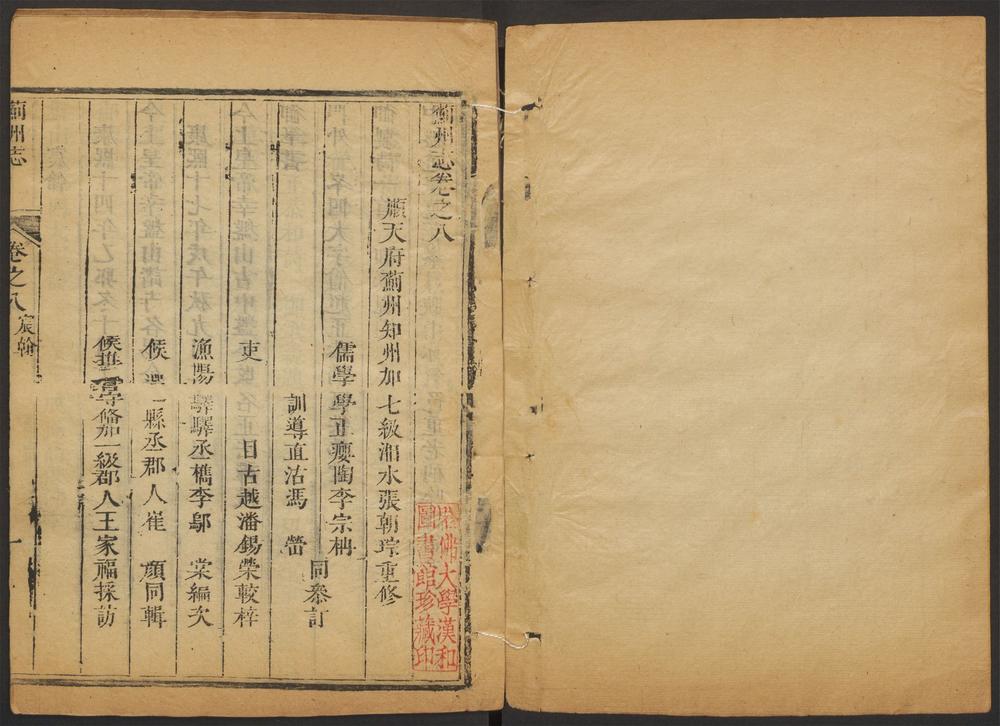 薊州志卷之八
順天府薊州知州加七級湘水張朝琮重修
儒學學正癭陶李宗枏
訓導直沽馮
同叅訂
吏目古越潘錫榮較梓
漁陽驛驛丞檇李鄔棠編次
候選縣丞郡人崔顏同輯
候推守備加一級郡人王家福採訪
薊州志
卷之八
宸翰
一
哈佛大學漢和
圖書館珍藏印